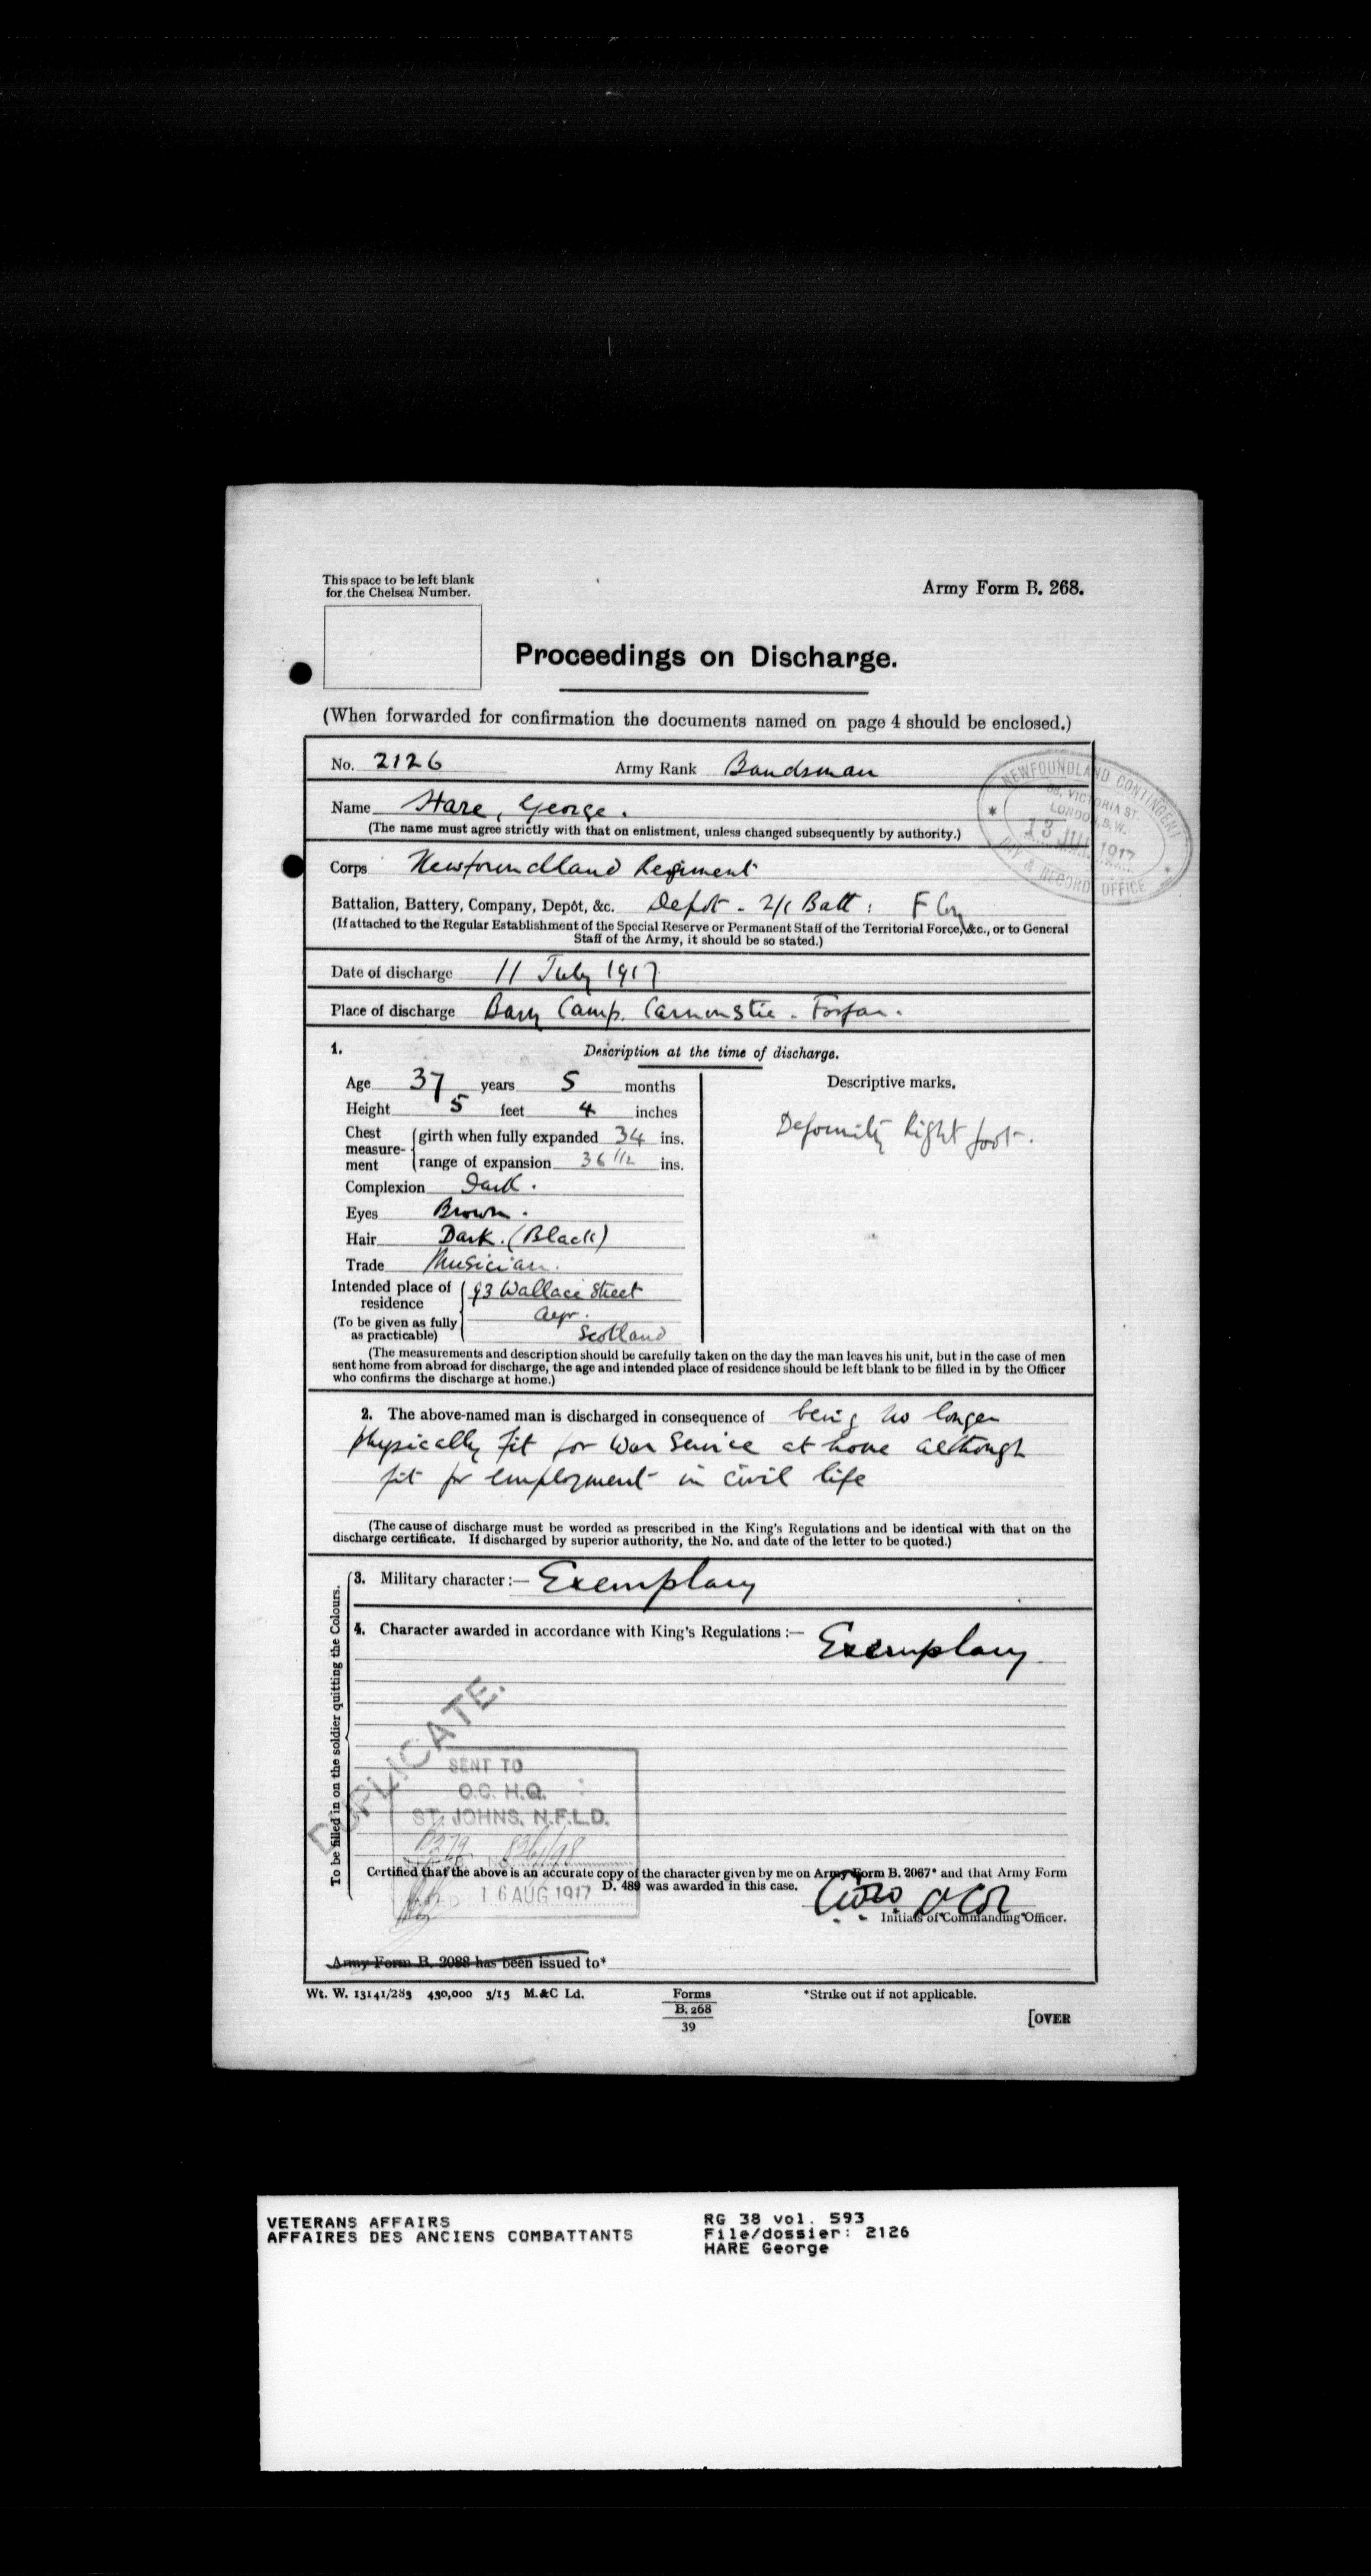 This space to be left blank
for the Chelsea Number.
Army Form B. 268.
Proceedings on Discharge.
(When forwarded for confirmation the documents named on page 4 should be enclosed.)
No. 2126 Army Rank Bandsman
Name Hare, George.
(The name must agree strictly with that on enlistment, unless changed subsequently by authority.)
NEWFOUNDLAND CONTINGENT
58, VICTORIA ST.
LONDON, S.W.
13 JUL 1917
PAY & RECORD OFFICE
Corps Newfoundland Regiment
Battalion, Battery, Company, Depôt, &c. Depôt - 2/1 Batt: F Coy
(If attached to the Regular Establishment of the Special Reserve or Permanent Staff of the Territorial Force, &c., or to General
Staff of the Army, it should be so stated.)
Date of discharge 11 July 1917
Place of discharge Barry Camp. Carnoustie - Forfar.
1. Description at the time of discharge.
Age 37 years 5 months
Height 5 feet 4 inches
Chest measure-ment girth when fully expanded 34 ins.
range of expansion 36 1/2 ins.
Complexion Dark.
Eyes Brown.
Hair Dark. (Black)
Trade Musician.
Intended place of residence 93 Wallace Street
(To be given as fully as practicable) Ayr.
Scotland
Descriptive marks.
Deformity Right foot.
(The measurements and description should be carefully taken on the day the man leaves his unit, but in the case of men
sent home from abroad for discharge, the age and intended place of residence should be left blank to be filled in by the Officer
who confirms the discharge at home.)
2. The above-named man is discharged in consequence of being no longer
physically fit for War Service at home although
fit for employment in civil life
(The cause of discharge must be worded as prescribed in the King's Regulations and be identical with that on the
discharge certificate. If discharged by superior authority, the No. and date of the letter to be quoted.)
To be filled in on the soldier quitting the Colours.
3. Military character :— Exemplary
4. Character awarded in accordance with King's Regulations :— Exemplary
DUPLICATE.
SENT TO
O.C. H.Q.
ST. JOHNS, N.F.L.D.
16 AUG 1917
Certified that the above is an accurate copy of the character given by me on Army Form B. 2067* and that Army Form
D. 489 was awarded in this case.
Initials of Commanding Officer.
Army Form B. 2088 has been issued to*
Wt. W. 13141/283 450,000 3/15 M.&C Ld.
Forms
B. 268
39
*Strike out if not applicable.
[OVER
VETERANS AFFAIRS
AFFAIRES DES ANCIENS COMBATTANTS
RG 38 vol. 593
File/dossier: 2126
HARE George